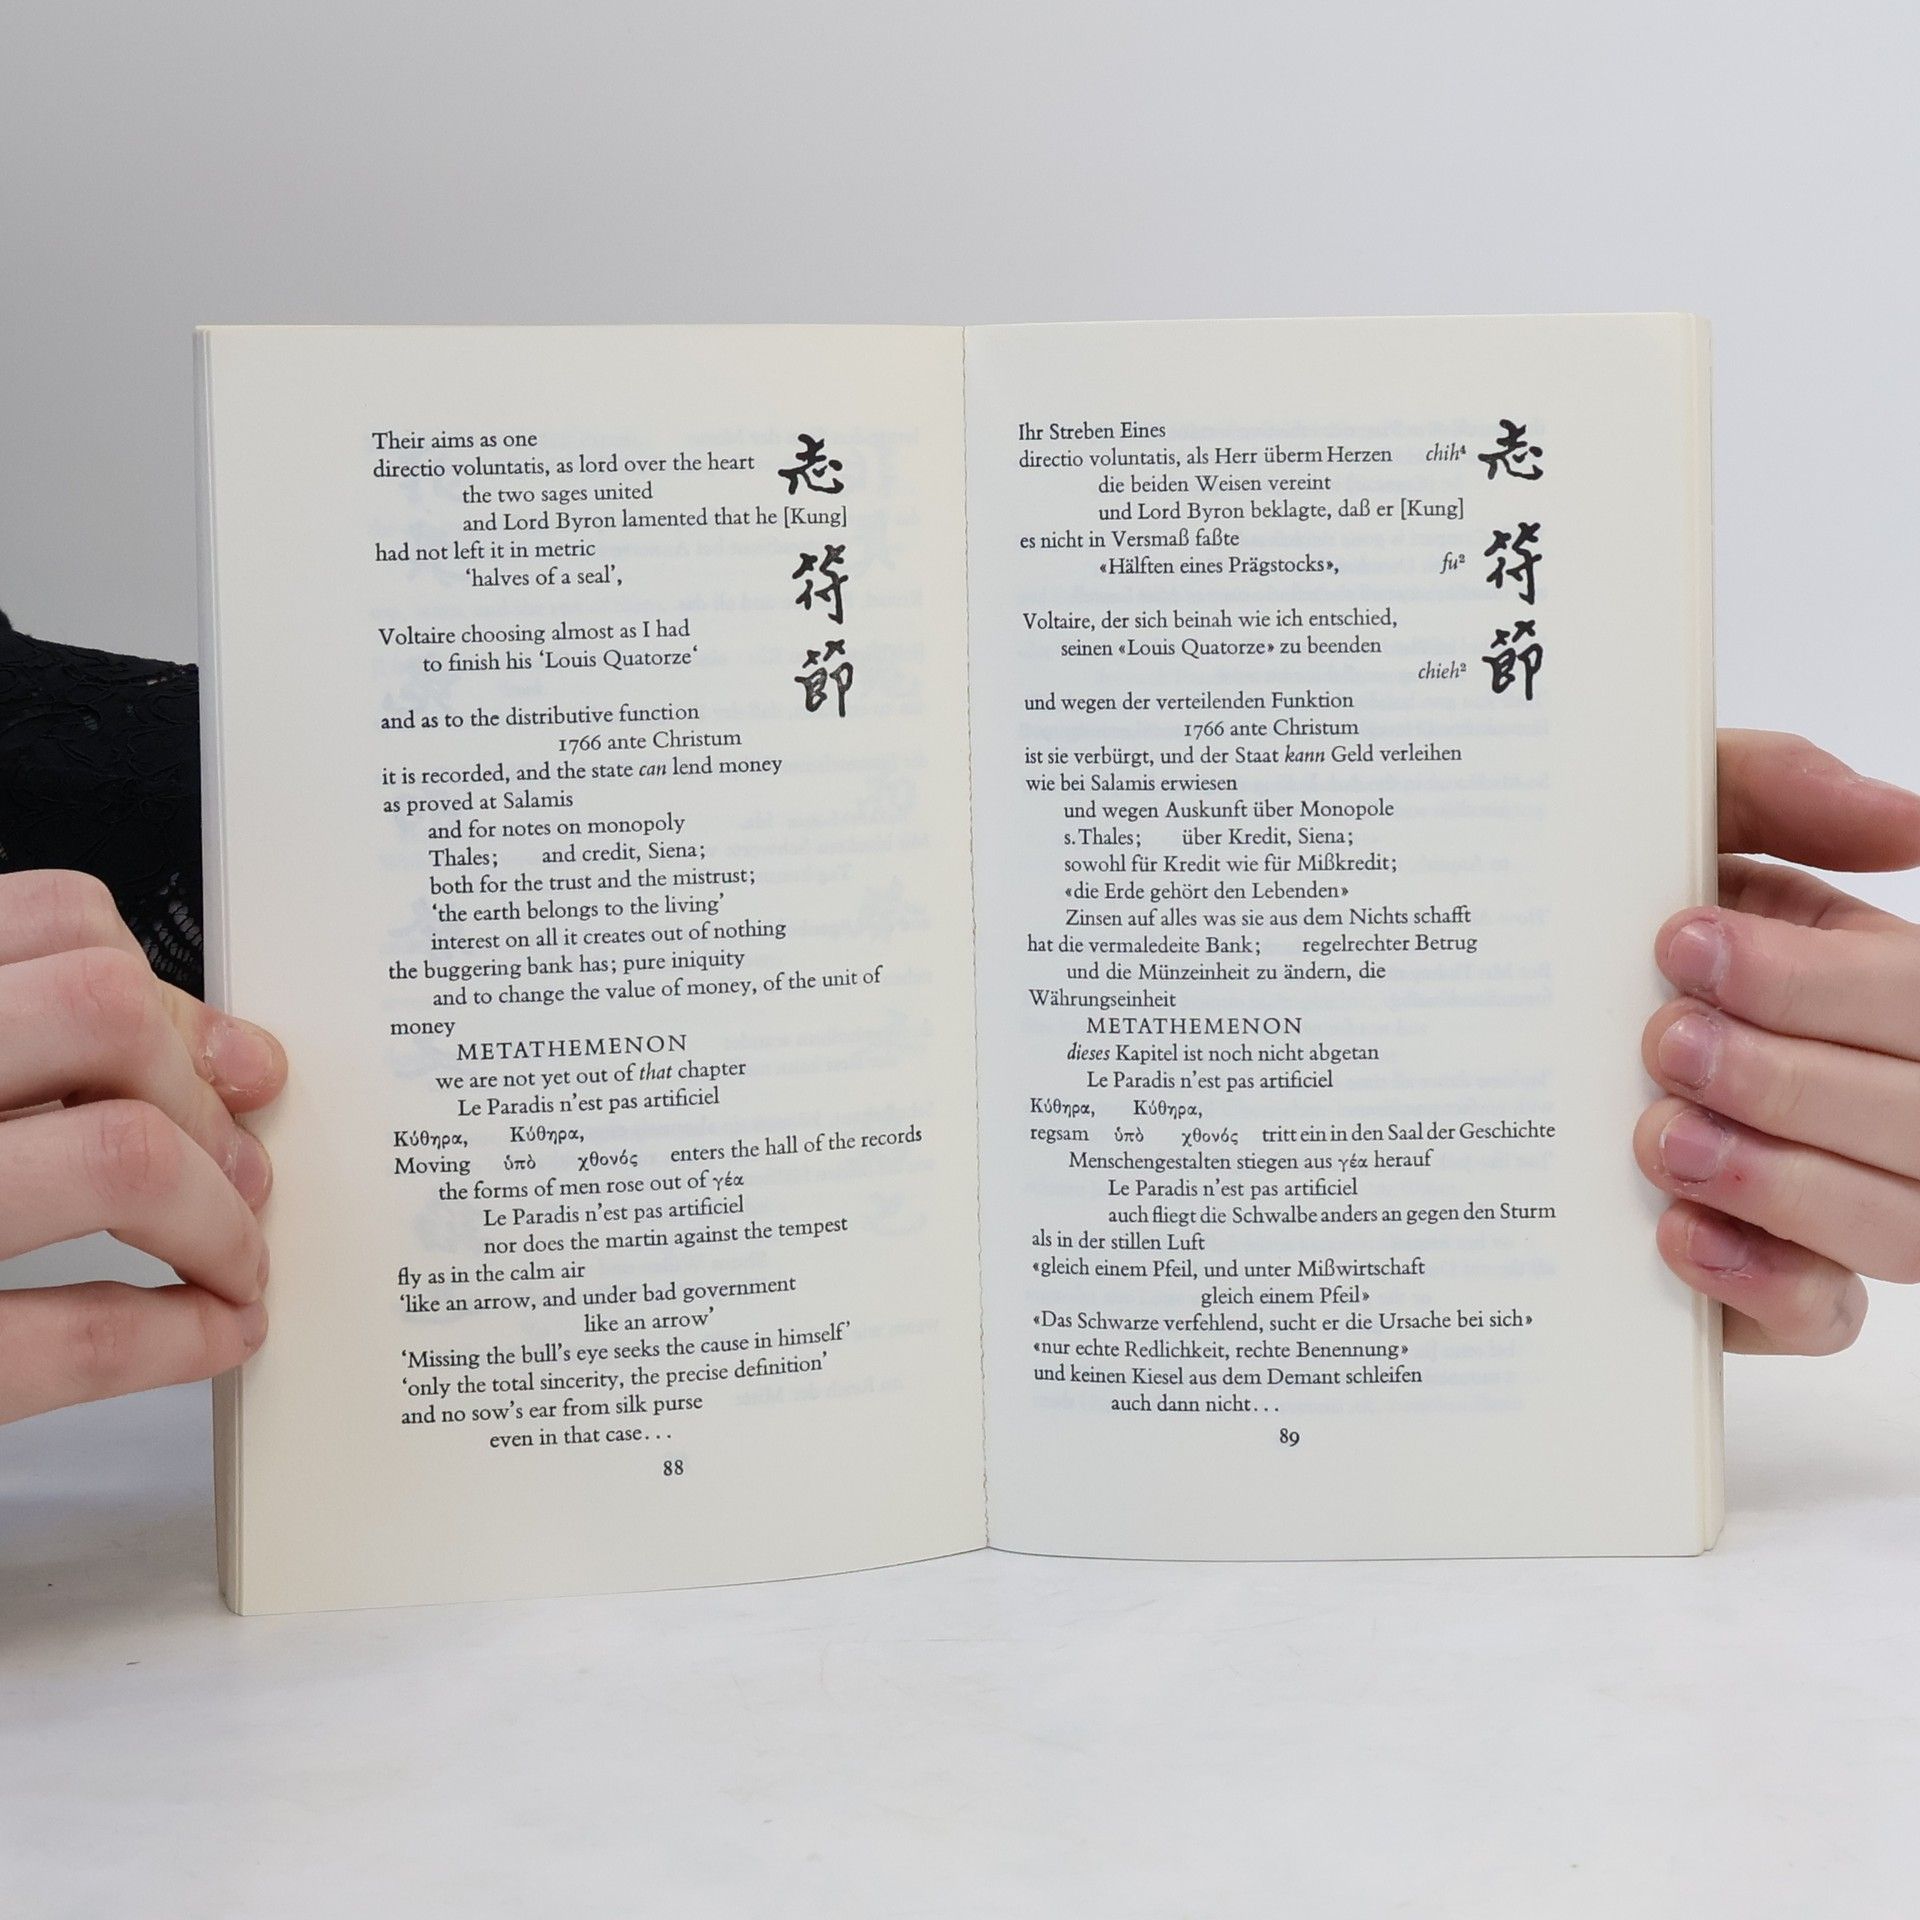 Their aims as one
directio voluntatis, as lord over the heart 志
the two sages united
and Lord Byron lamented that he [Kung]
had not left it in metric
‘halves of a seal’, 符
Voltaire choosing almost as I had
to finish his ‘Louis Quatorze‘ 節
and as to the distributive function
1766 ante Christum
it is recorded, and the state can lend money
as proved at Salamis
and for notes on monopoly
Thales; and credit, Siena;
both for the trust and the mistrust;
‘the earth belongs to the living’
interest on all it creates out of nothing
the buggering bank has; pure iniquity
and to change the value of money, of the unit of
money
METATHEMENON
we are not yet out of that chapter
Le Paradis n’est pas artificiel
Κύθηρα, Κύθηρα,
Moving ὑπὸ χθονός enters the hall of the records
the forms of men rose out of γέα
Le Paradis n’est pas artificiel
nor does the martin against the tempest
fly as in the calm air
‘like an arrow, and under bad government
like an arrow’
‘Missing the bull’s eye seeks the cause in himself’
‘only the total sincerity, the precise definition’
and no sow’s ear from silk purse
even in that case...
88
Ihr Streben Eines
directio voluntatis, als Herr überm Herzen chih⁴ 志
die beiden Weisen vereint
und Lord Byron beklagte, daß er [Kung]
es nicht in Versmaß faßte
«Hälften eines Prägstocks», fu² 符
Voltaire, der sich beinah wie ich entschied,
seinen «Louis Quatorze» zu beenden
chieh² 節
und wegen der verteilenden Funktion
1766 ante Christum
ist sie verbürgt, und der Staat kann Geld verleihen
wie bei Salamis erwiesen
und wegen Auskunft über Monopole
s. Thales; über Kredit, Siena;
sowohl für Kredit wie für Mißkredit;
«die Erde gehört den Lebenden»
Zinsen auf alles was sie aus dem Nichts schafft
hat die vermaledeite Bank; regelrechter Betrug
und die Münzeinheit zu ändern, die
Währungseinheit
METATHEMENON
dieses Kapitel ist noch nicht abgetan
Le Paradis n’est pas artificiel
Κύθηρα, Κύθηρα,
regsam ὑπὸ χθονός tritt ein in den Saal der Geschichte
Menschengestalten stiegen aus γέα herauf
Le Paradis n’est pas artificiel
auch fliegt die Schwalbe anders an gegen den Sturm
als in der stillen Luft
«gleich einem Pfeil, und unter Mißwirtschaft
gleich einem Pfeil»
«Das Schwarze verfehlend, sucht er die Ursache bei sich»
«nur echte Redlichkeit, rechte Benennung»
und keinen Kiesel aus dem Demant schleifen
auch dann nicht...
89